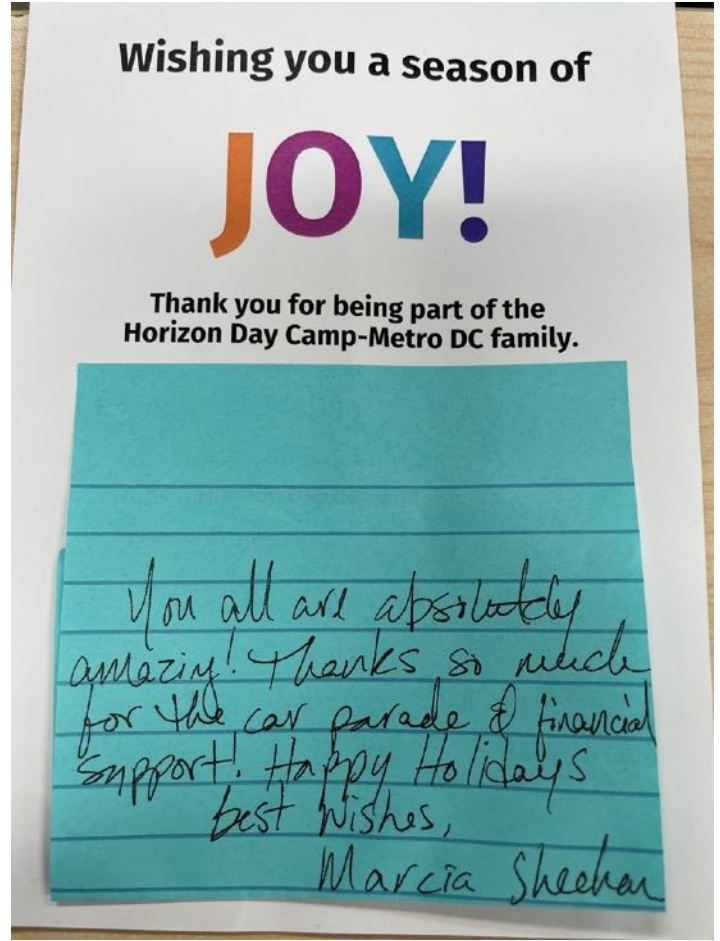 Wishing you a season of
JOY!
Thank you for being part of the
Horizon Day Camp-Metro DC family.
You all are absolutely
amazing! Thanks so much
for the car parade & financial
support! Happy Holidays
best wishes,
Marcia Sheehan